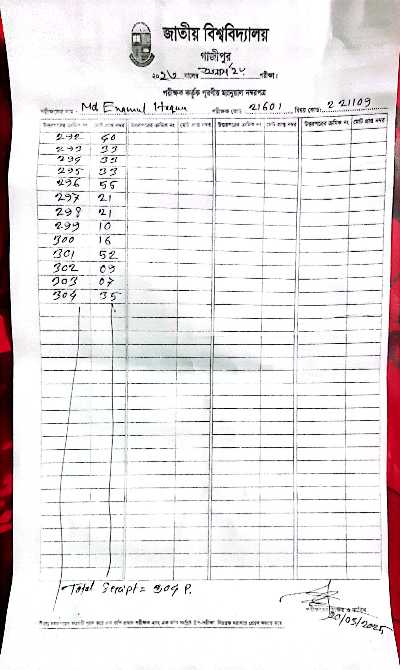 জাতীয় বিশ্ববিদ্যালয়
গাজীপুর
সালের পরীক্ষা।
পরীক্ষক কর্তৃক পূরণীয় ম্যানুয়াল নম্বরপত্র
পরীক্ষকের নাম: Md Enamul Hoque পরীক্ষক কোড: 21601 বিষয় কোড: 221109
উত্তরপত্রের ক্রমিক নং মোট প্রাপ্ত নম্বর উত্তরপত্রের ক্রমিক নং মোট প্রাপ্ত নম্বর উত্তরপত্রের ক্রমিক নং মোট প্রাপ্ত নম্বর উত্তরপত্রের ক্রমিক নং মোট প্রাপ্ত নম্বর
292
293 33
294 33
295 33
296 55
297 21
298 21
299 10
300 16
301 52
302 09
303 07
304 35
Total Script = 304 P.
পরীক্ষকের স্বাক্ষর ও তারিখ
20/05/2025